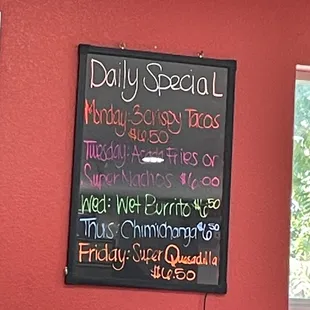 Daily Special
Monday: 3 crispy Tacos
$6.50
Tuesday: Asada Fries or
Super Nachos $6.00
Wed: Wet Burrito $6.50
Thurs: Chimichanga $6.50
Friday: Super Quesadilla
$6.50